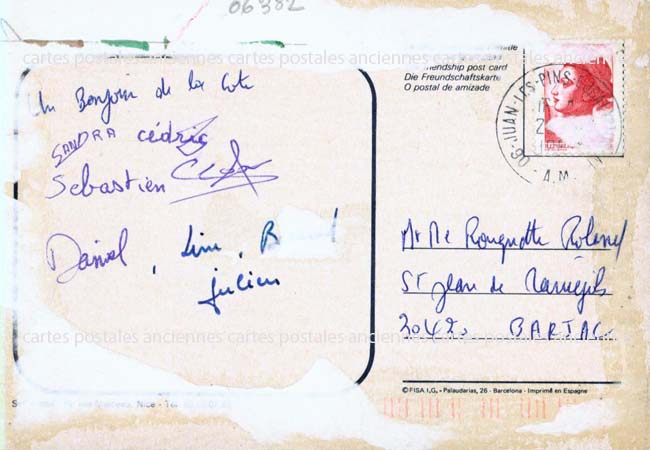 06382
cartes postales anciennes cartes postales anciennes cartes postales anciennes
friendship post card
Die Freundschaftskarte
O postal de amizade
Un Bonjour de la Cote
SANDRA Cédric
Sebastien
Daniel, Line, B
Julien
JUAN-LES-PINS
06 A.M.
Mr Me Rouquette Roland
St Jean de
30420 BARJAC
cartes postales anciennes cartes postales anciennes cartes postales anciennes
© FISA I.G. - Palaudarias, 26 - Barcelona - Imprimé en Espagne
Nice